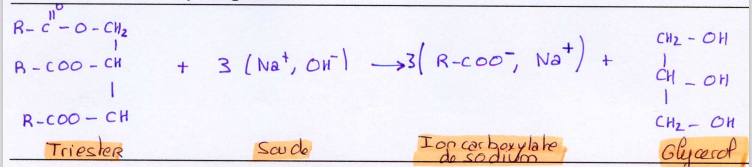 R - C - O - CH2
O
R - COO - CH + 3 (Na+, OH-) → 3( R-COO-, Na+) +
R-COO - CH
CH2 - OH
CH - OH
CH2 - OH
Triester
Soude
Ion carboxylate
de sodium
Glycerol